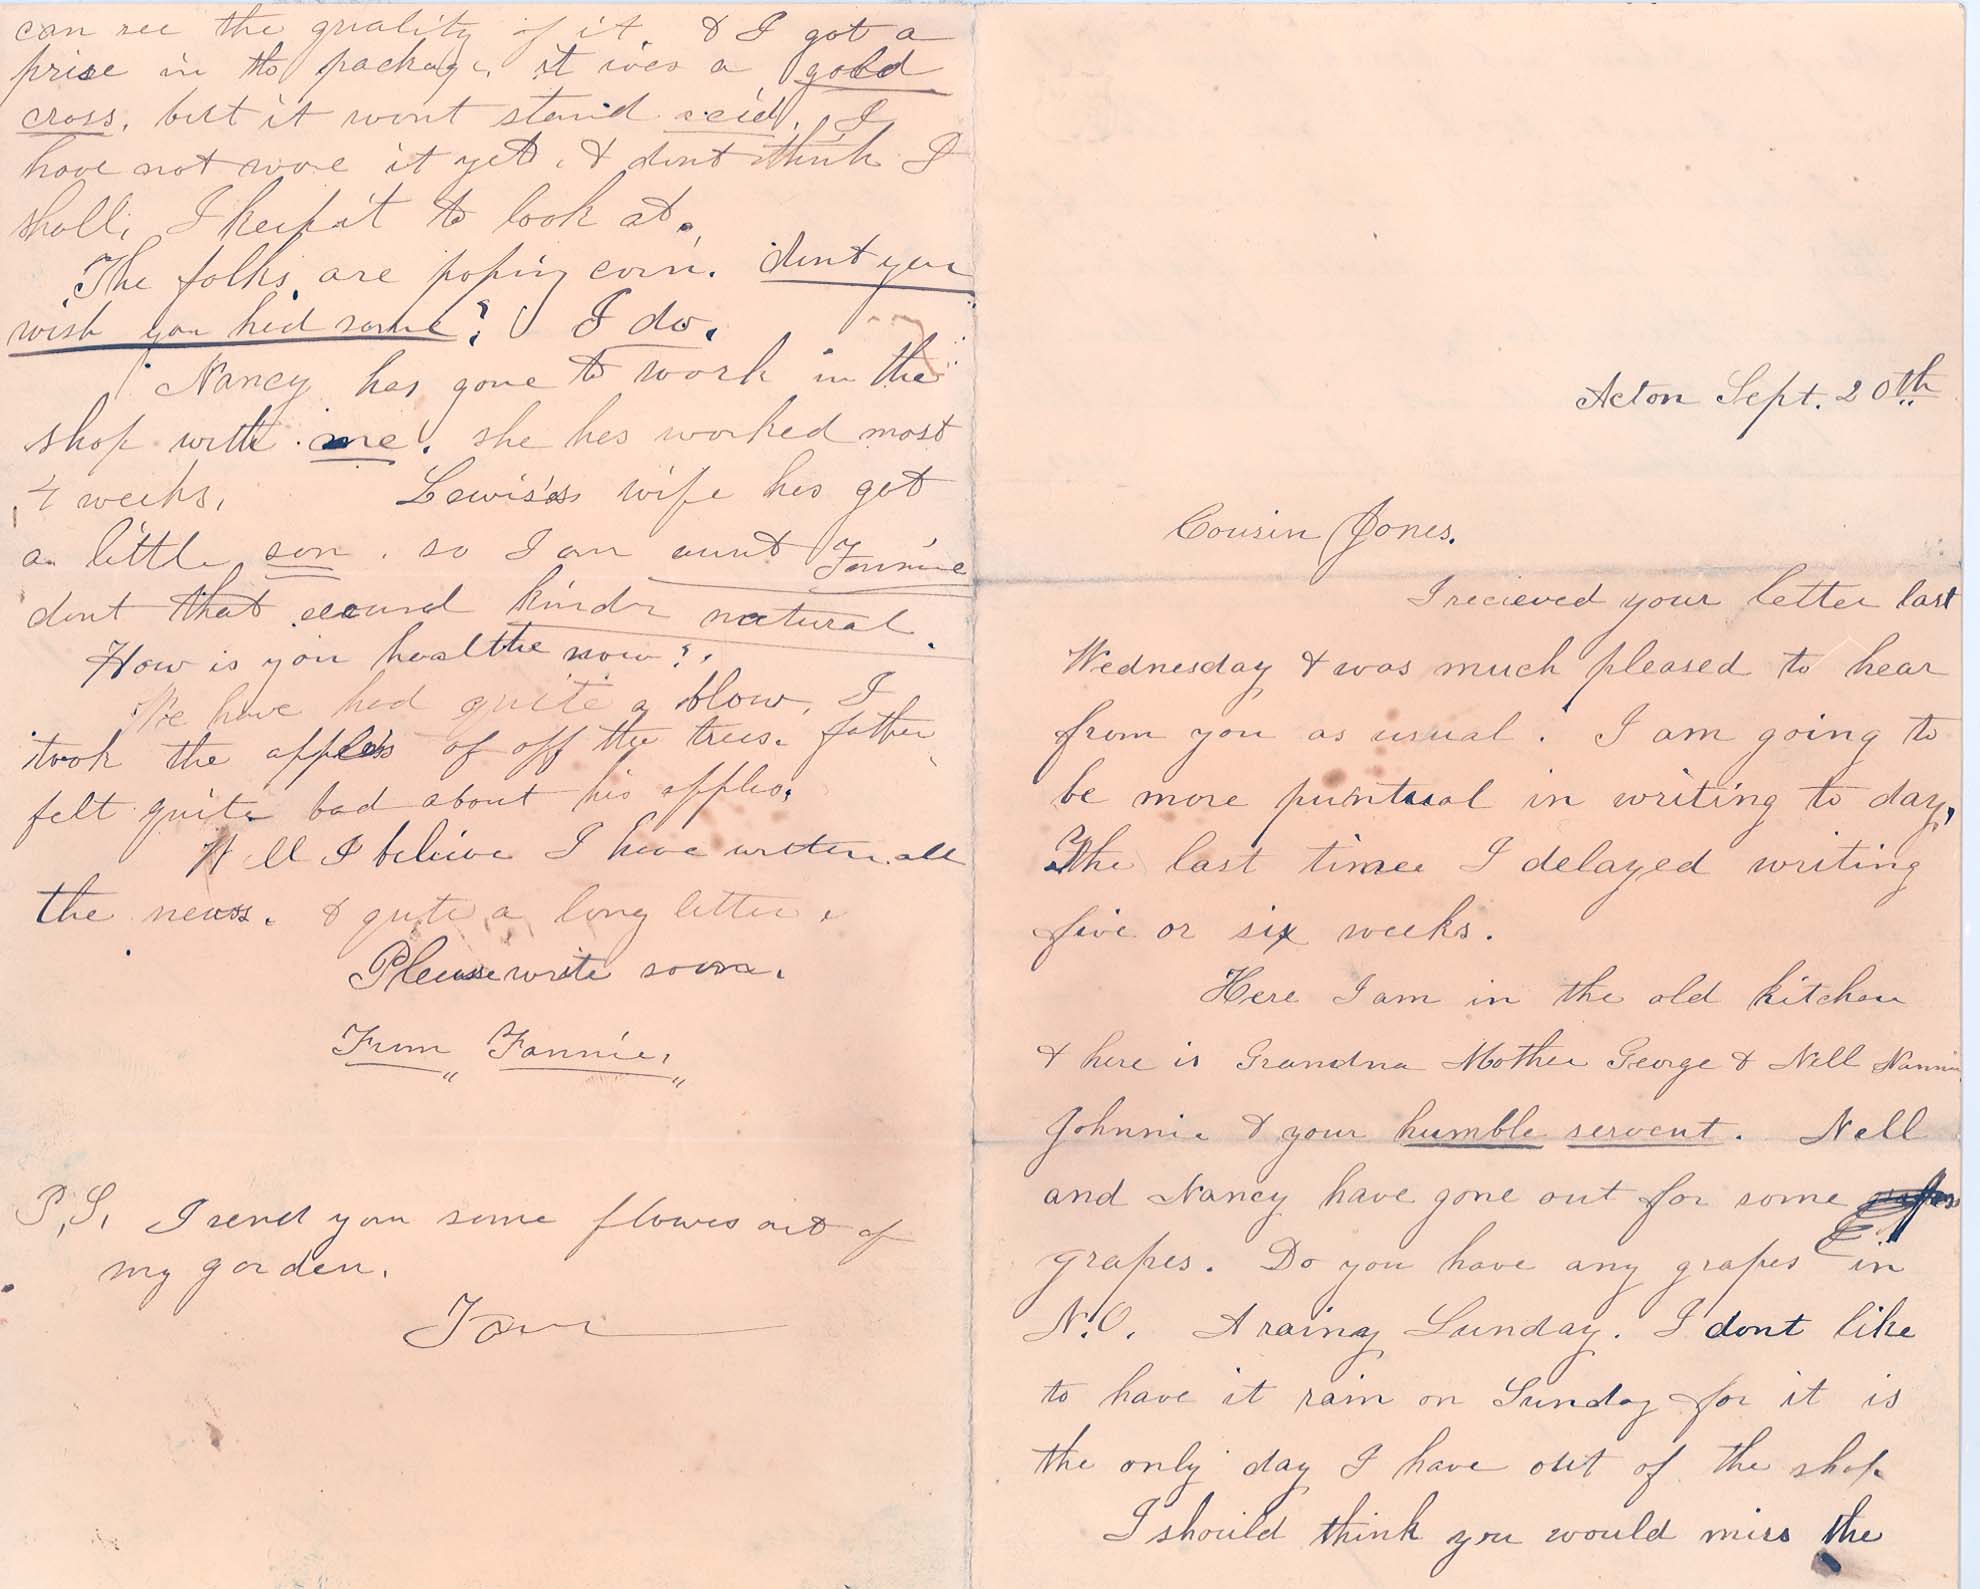 Acton Sept. 20th
Cousin Jones.
I recieved your letter last
Wednesday & was much pleased to hear
from you as usual. I am going to
be more puntual in writing to day,
The last time I delayed writing
five or six weeks.
Here I am in the old kitchen
& here is Grandma Mother George & Nell Nannie
Johnnie & your humble servent. Nell
and Nancy have gone out for some
grapes. Do you have any grapes in
N.O. A rainy Sunday. I dont like
to have it rain on Sunday for it is
the only day I have out of the shop
I should think you would miss the
can see the quality of it. & I got a
prise in the package. it was a gold
cross, but it wont stand acid. I
have not wore it yet, & dont think I
shall, I keep it to look at.
The folks are poping corn. dont you
wish you had some? I do.
Nancy has gone to work in the
shop with me. she has worked most
4 weeks. Lewis's wife has got
a little son. so I am aunt Fannie
dont that sound kinder natural.
How is you healthe now?
We have had quite a blow, I
took the apples of off the trees. father
felt quite bad about his apples.
Well I believe I have writen all
the news. & quite a long letter.
Please write soon.
From Fannie.
P.S. I send you some flowes out of
my garden.
Fan